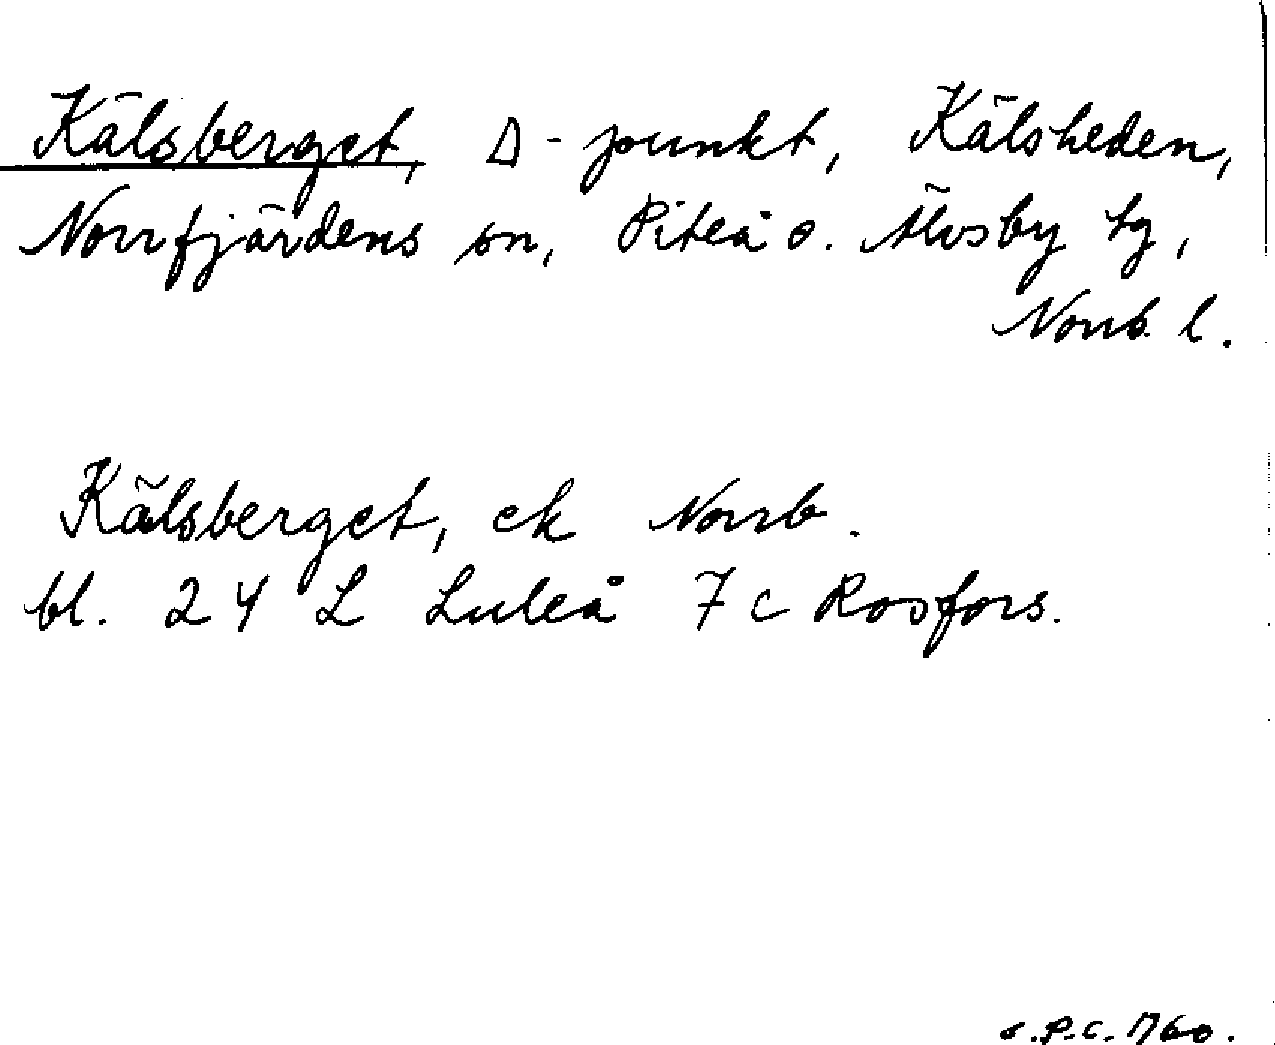 Kälsberget, Δ-punkt, Kälsheden,
Norrfjärdens sn, Piteå o. Älvsby tg,
Norrb. l.
Kälsberget, ek Norrb.
bl. 24 L Luleå 7 c Rosfors.